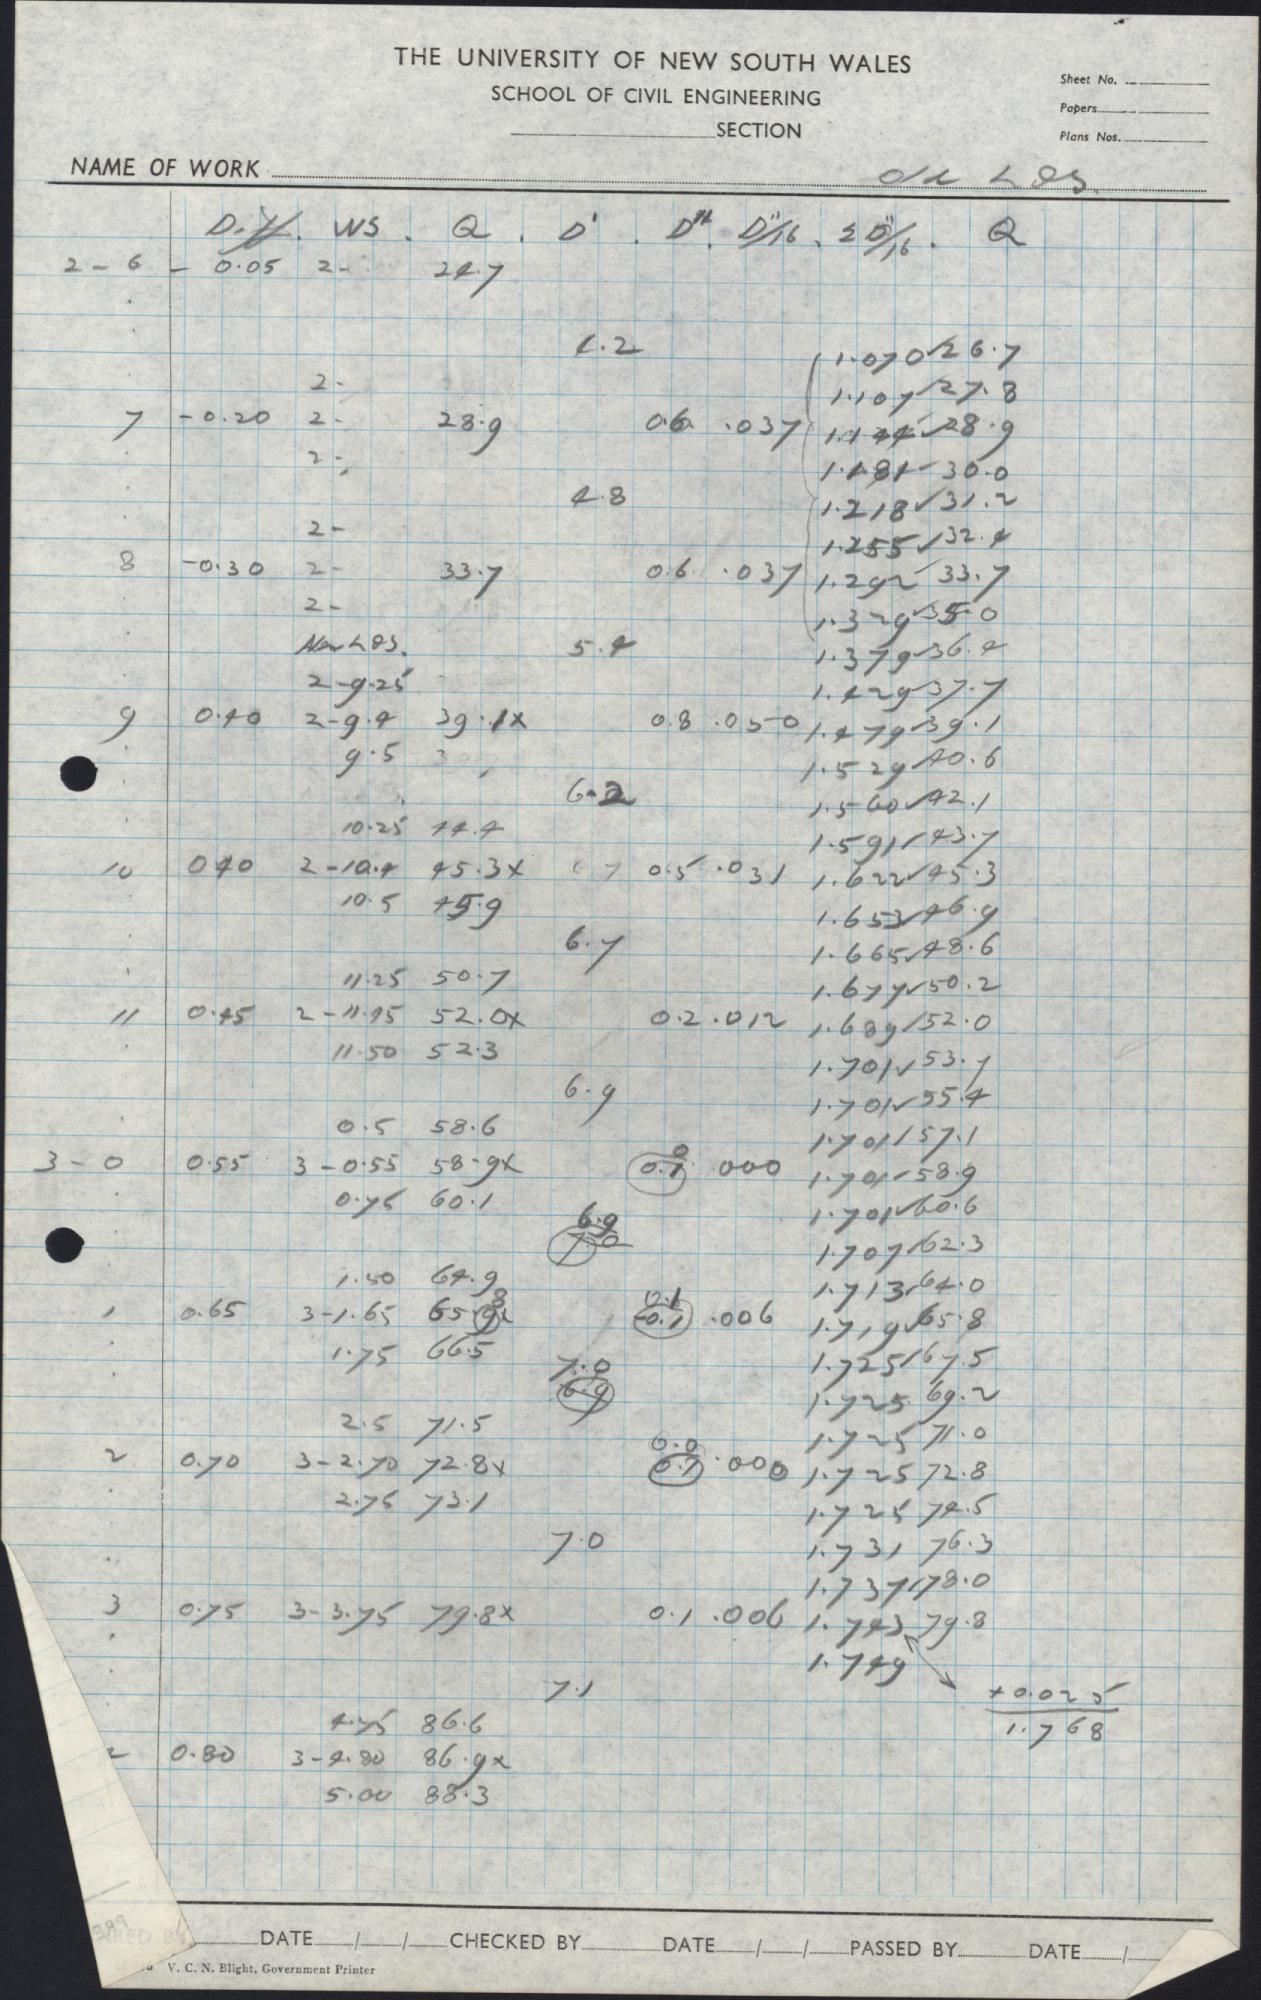 THE UNIVERSITY OF NEW SOUTH WALES
Sheet No.
SCHOOL OF CIVIL ENGINEERING
Papers
SECTION
Plans Nos.
NAME OF WORK
Diff. WS. Q. D' . D". D"/16. Σ D"/16. Q
2-6 -0.05 2- 24.7
4.2 1.070 ✓ 26.7
2- 1.107 ✓ 27.8
7 -0.20 2- 28.9 0.6 .037 1.144 ✓ 28.9
2- 1.181 30.0
4.8 1.218 ✓ 31.2
2- 1.255 ✓ 32.4
8 -0.30 2- 33.7 0.6 .037 1.292 33.7
2- 1.329 ✓ 35.0
5.4 1.379 36.4
2-9.25 1.429 37.7
9 0.40 2-9.4 39.1x 0.8 .050 1.479 39.1
9.5 1.529 40.6
6.2 1.560 ✓ 42.1
10.25 44.4 1.591 ✓ 43.7
10 0.40 2-10.4 45.3x 0.5 .031 1.622 ✓ 45.3
10.5 45.9 1.653 ✓ 46.9
6.7 1.665 ✓ 48.6
11.25 50.7 1.677 ✓ 50.2
11 0.45 2-11.45 52.0x 0.2 .012 1.689 ✓ 52.0
11.50 52.3 1.701 ✓ 53.7
6.9 1.701 ✓ 55.4
0.5 58.6 1.701 ✓ 57.1
3-0 0.55 3-0.55 58.9x 0.1 0 .000 1.701 58.9
0.75 60.1 1.701 ✓ 60.6
6.9 7.0 1.707 ✓ 62.3
1.50 64.9 1.713 ✓ 64.0
1 0.65 3-1.65 65.9x 8 0.1 -0.1 .006 1.719 ✓ 65.8
1.75 66.5 1.725 ✓ 67.5
7.0 6.9 1.725 69.2
2.5 71.5 1.725 71.0
2 0.70 3-2.70 72.8x 0.0 0.1 .000 1.725 72.8
2.75 73.1 1.725 74.5
7.0 1.731 76.3
1.737 ✓ 78.0
3 0.75 3-3.75 79.8x 0.1 .006 1.743 79.8
1.749
7.1 +0.025
4.75 86.6 1.768
0.80 3-4.80 86.9x
5.00 88.3
DATE / / CHECKED BY DATE / / PASSED BY DATE /
V. C. N. Blight, Government Printer